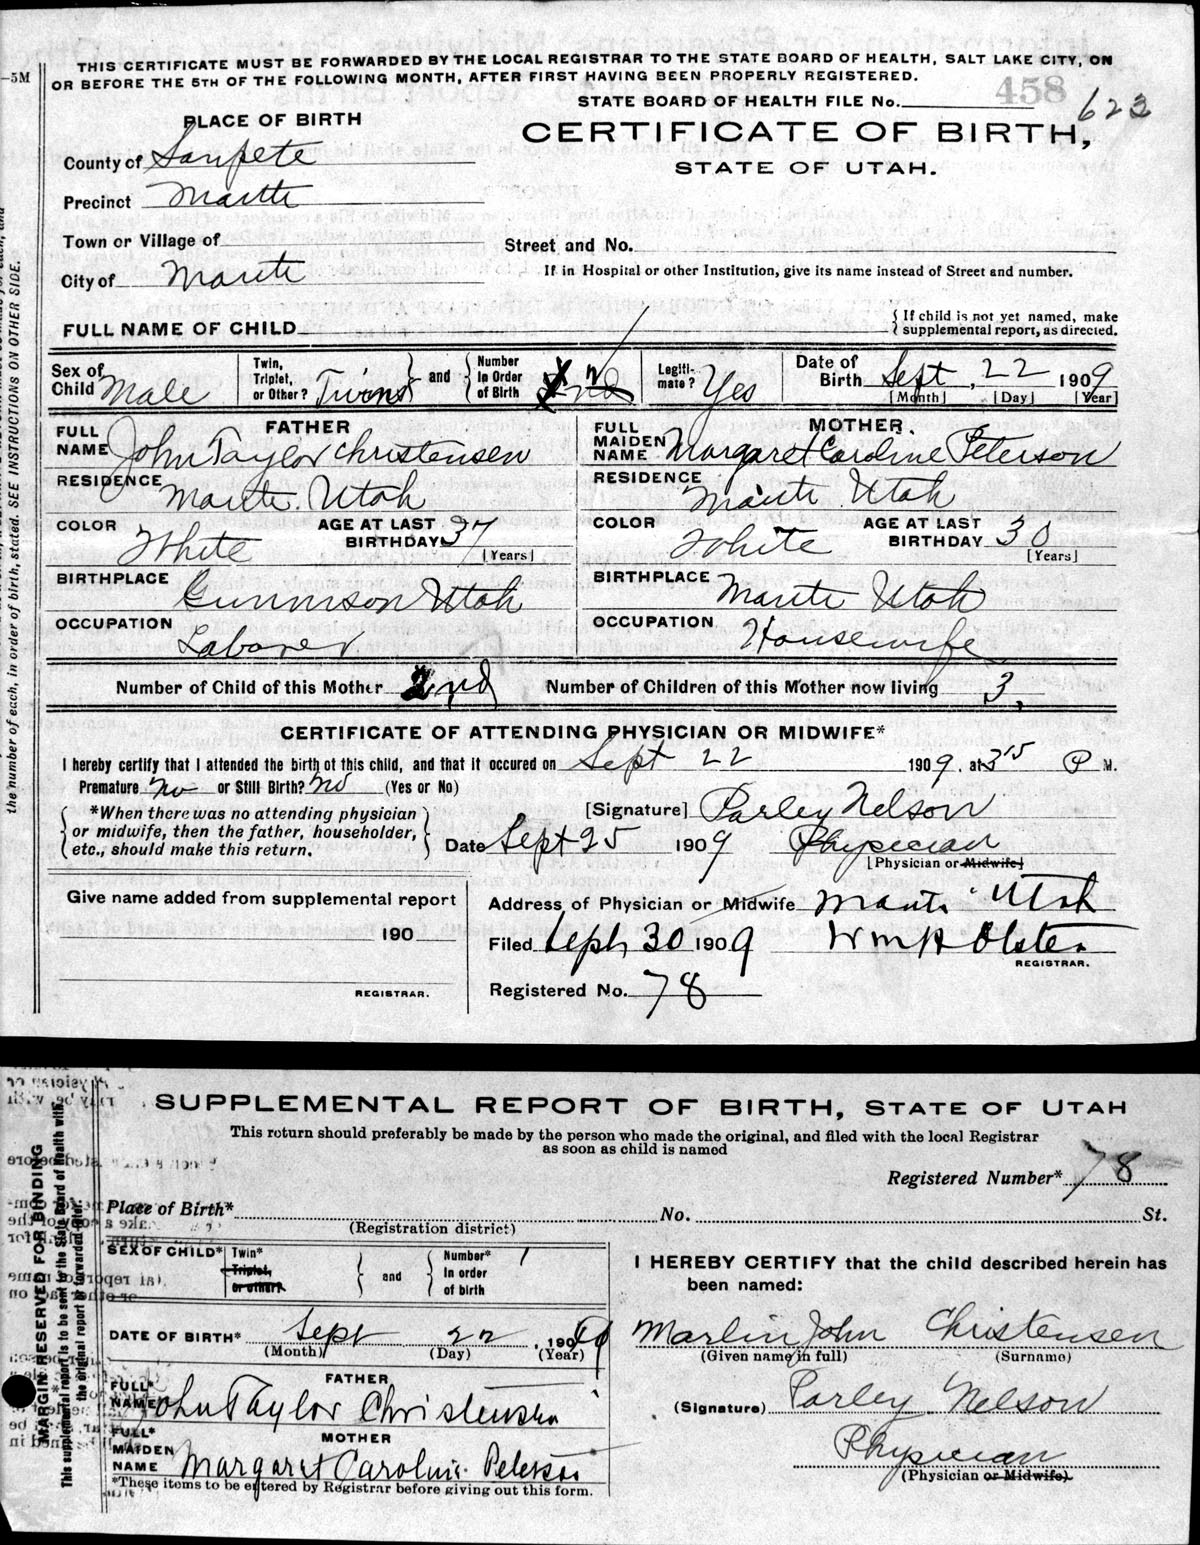 THIS CERTIFICATE MUST BE FORWARDED BY THE LOCAL REGISTRAR TO THE STATE BOARD OF HEALTH, SALT LAKE CITY, ON
OR BEFORE THE 5TH OF THE FOLLOWING MONTH, AFTER FIRST HAVING BEEN PROPERLY REGISTERED.
—5M
STATE BOARD OF HEALTH FILE No. 458 623
PLACE OF BIRTH
CERTIFICATE OF BIRTH,
STATE OF UTAH.
County of Sanpete
Precinct Manti
Town or Village of
Street and No.
City of Manti
If in Hospital or other Institution, give its name instead of Street and number.
FULL NAME OF CHILD
{ If child is not yet named, make supplemental report, as directed.
Sex of Child Male
Twin, Triplet, or Other? Twins } and { Number In Order of Birth 2nd
Legiti- mate? Yes
Date of Birth Sept, 22 1909
[Month] [Day] [Year]
FATHER
FULL NAME John Taylor Christensen
RESIDENCE Manti. Utah
COLOR White
AGE AT LAST BIRTHDAY 37 [Years]
BIRTHPLACE Gunnison Utah
OCCUPATION Laborer
MOTHER.
FULL MAIDEN NAME Margaret Caroline Peterson
RESIDENCE Manti Utah
COLOR White
AGE AT LAST BIRTHDAY 30 [Years]
BIRTHPLACE Manti Utah
OCCUPATION Housewife
Number of Child of this Mother 2nd
Number of Children of this Mother now living 3,
CERTIFICATE OF ATTENDING PHYSICIAN OR MIDWIFE*
I hereby certify that I attended the birth of this child, and that it occured on Sept 22 1909. at 3 15 P M.
Premature? No or Still Birth? No (Yes or No)
{ *When there was no attending physician
or midwife, then the father, householder,
etc., should make this return. }
[Signature] Parley Nelson
Date Sept 25 1909 Physician
[Physician or Midwife]
Give name added from supplemental report
190
REGISTRAR.
Address of Physician or Midwife Manti Utah
Filed Sept, 30 1909 Wm H Olsten
REGISTRAR.
Registered No. 78
the number of each, in order of birth, stated. SEE INSTRUCTIONS ON OTHER SIDE.
SUPPLEMENTAL REPORT OF BIRTH, STATE OF UTAH
This return should preferably be made by the person who made the original, and filed with the local Registrar
as soon as child is named
Registered Number* 78
Place of Birth* No. St.
(Registration district)
SEX OF CHILD*
Twin* Triplet, or other? } and { Number* In order of birth 1
DATE OF BIRTH* Sept 22, 1909
(Month) (Day) (Year)
FATHER
FULL* NAME John Taylor Christensen
MOTHER
FULL* MAIDEN NAME Margaret Caroline Peterson
*These items to be entered by Registrar before giving out this form.
I HEREBY CERTIFY that the child described herein has
been named:
Marlin John Christensen
(Given name in full) (Surname)
(Signature) Parley Nelson
Physician
(Physician or Midwife)
MARGIN RESERVED FOR BINDING
This supplemental report is to be sent to the State Board of Health with
the original report or forwarded later.